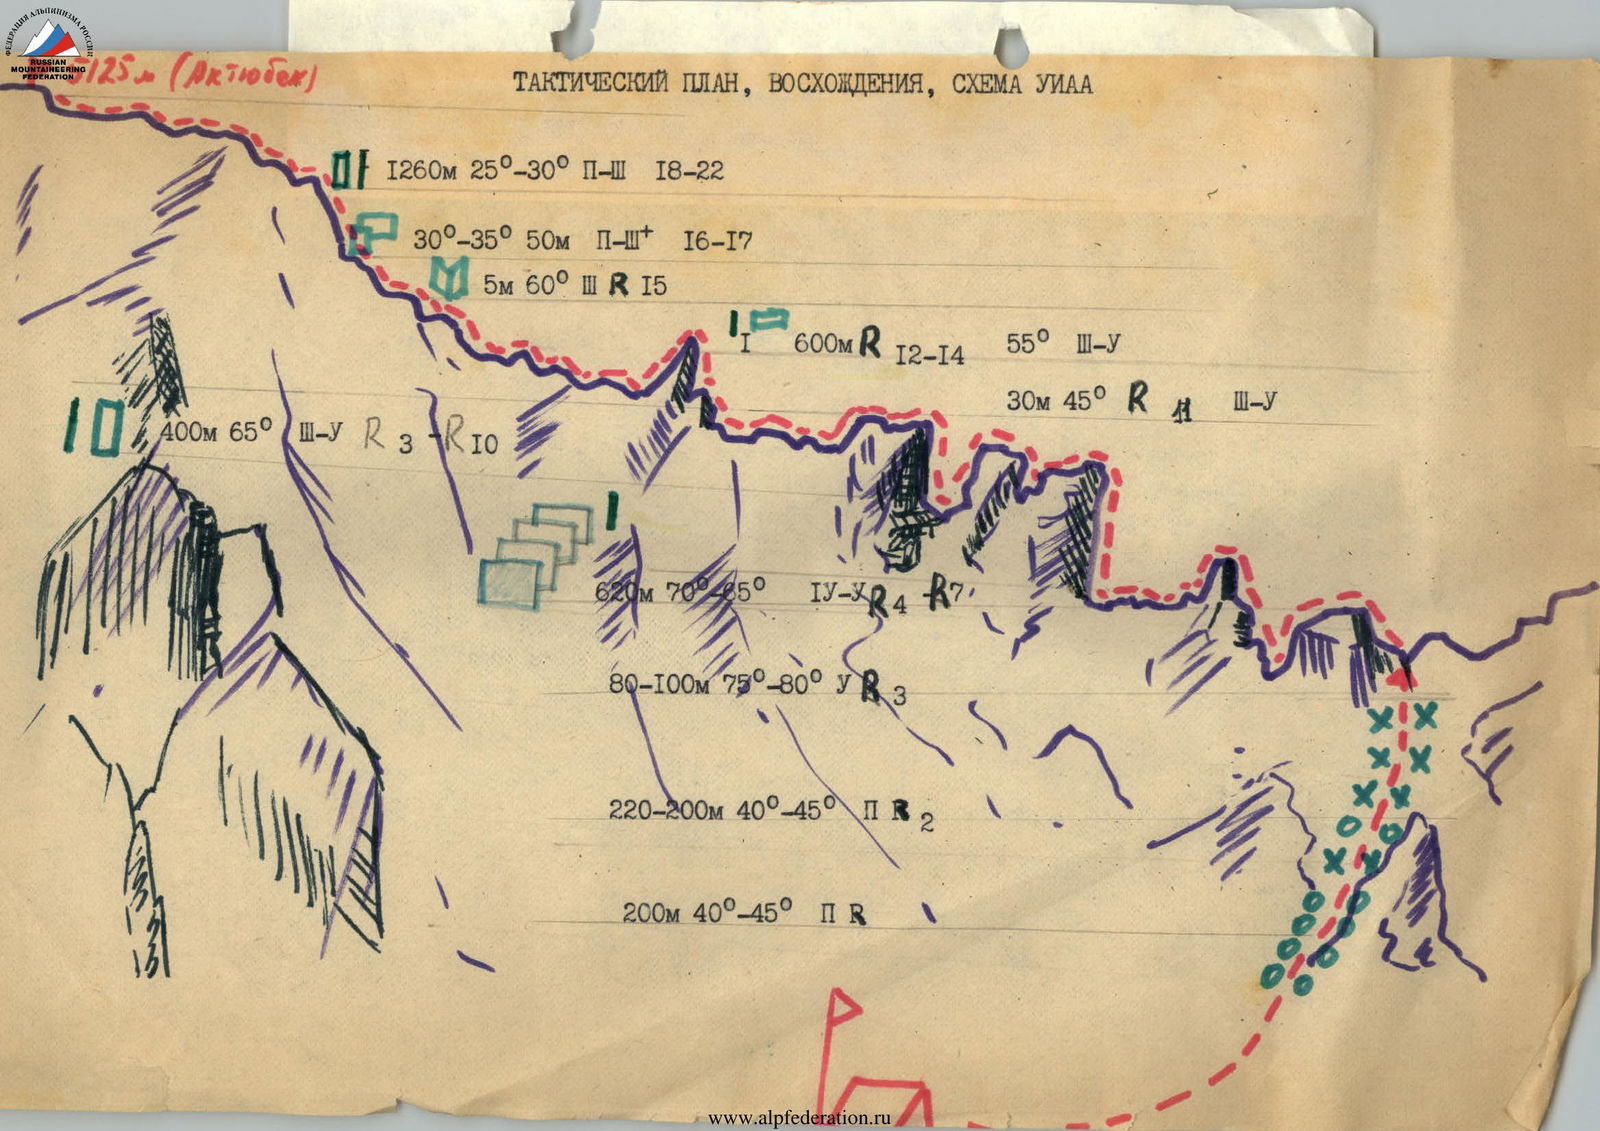 ФЕДЕРАЦИЯ АЛЬПИНИЗМА РОССИИ
RUSSIAN
MOUNTAINEERING
FEDERATION
5125м (Актюбек)
ТАКТИЧЕСКИЙ ПЛАН, ВОСХОЖДЕНИЯ, СХЕМА УИАА
I260м 25⁰-30⁰ П-Ш I8-22
30⁰-35⁰ 50м П-Ш⁺ I6-I7
5м 60⁰ Ш R I5
I 600м R I2-I4 55⁰ Ш-У
30м 45⁰ R 11 Ш-У
400м 65⁰ Ш-У R 3 -R I0
620м 70⁰-65⁰ IУ-У R 4 -R 7
80-I00м 75⁰-80⁰ У R 3
220-200м 40⁰-45⁰ П R 2
200м 40⁰-45⁰ П R
www.alpfederation.ru